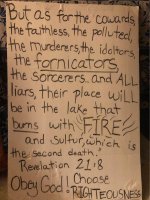 But as for the cowards,
the faithless, the polluted,
the murderers, the idoltors,
the fornicators,
the sorcerers. and ALL
liars, their place will
be in the lake that
burns with "FIRE"
and sulfur, which is
the second death.
Revelation 21:8
Obey God! Choose
RIGHTEOUSNESS